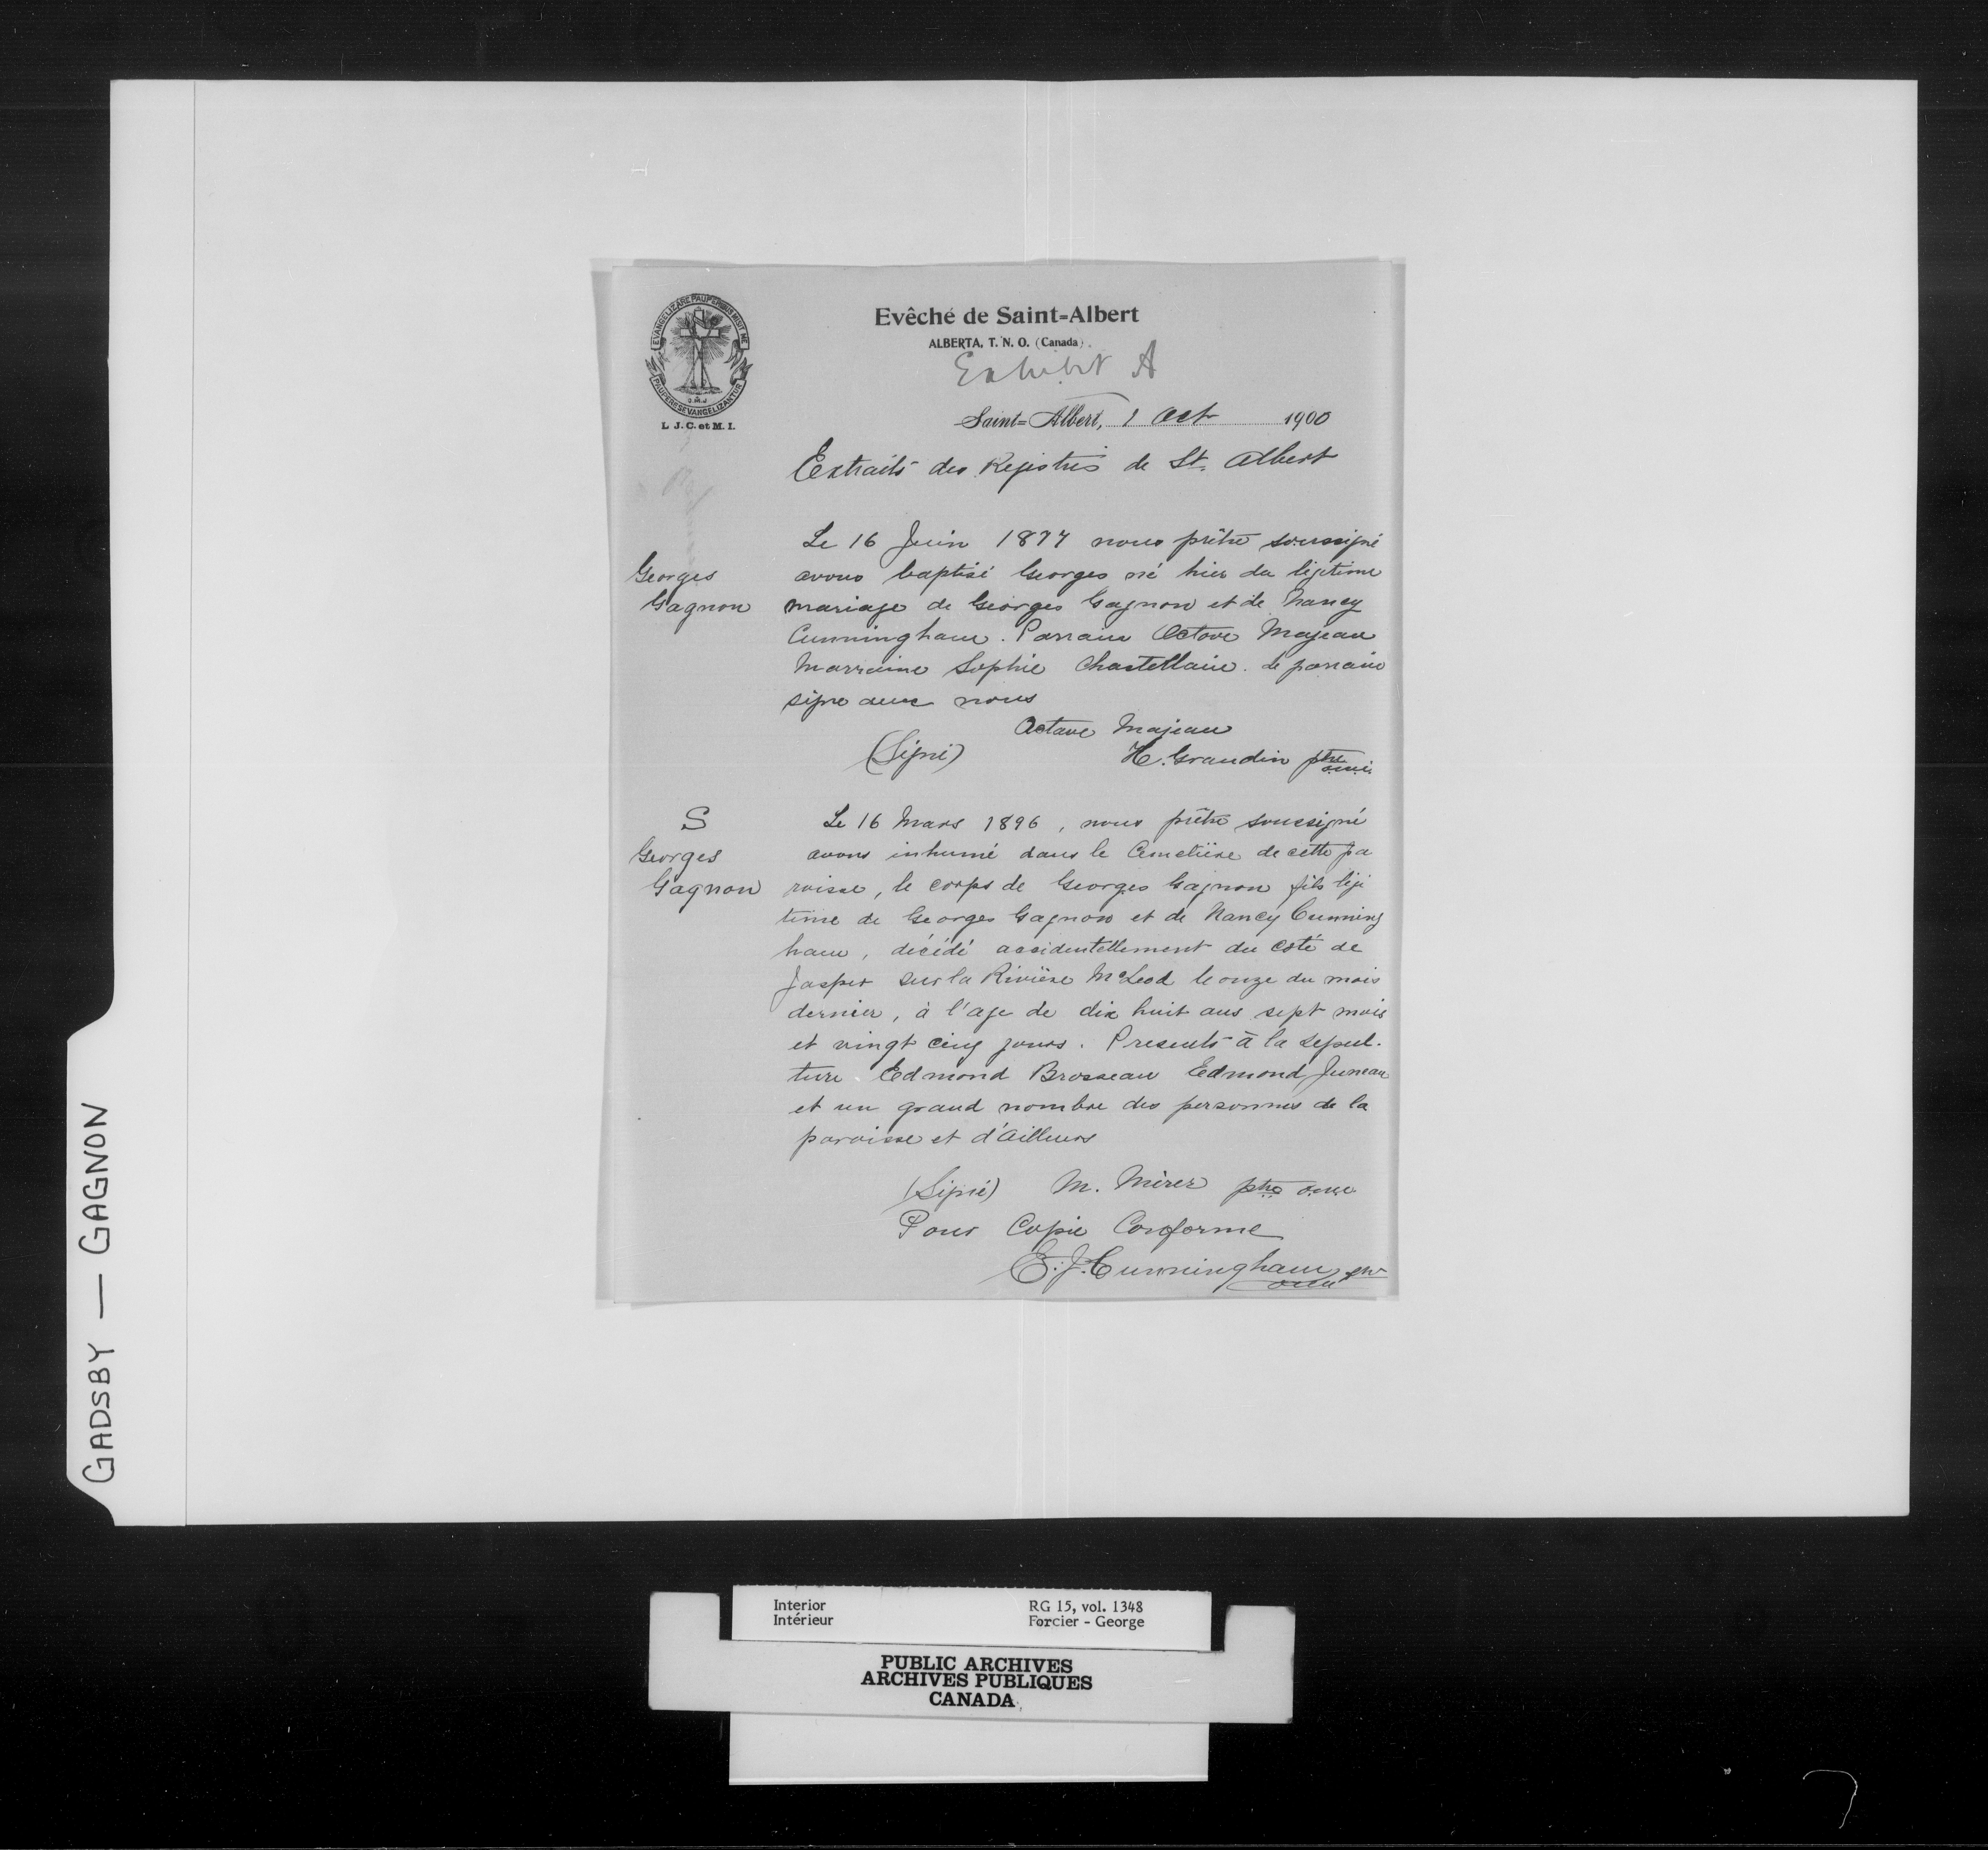 EVANGELIZARE PAUPERIBUS MISIT ME
PAUPERES EVANGELIZANTUR
O.M.J
L. J. C. et M. I.
Evêché de Saint-Albert
ALBERTA, T. N. O. (Canada).
Exhibit A
Saint-Albert, 1 Oct 1900
Extraits des Registres de St. Albert
Georges
Gagnon
Le 16 Juin 1877 nous prêtre soussigné
avons baptisé Georges né hier du légitime
mariage de Georges Gagnon et de Nancy
Cunningham. Parrain Octave Majeau
Marraine Sophie Chastellaine. Le parrain
signe avec nous
Octave Majeau
(Signé) H. Grandin ptre o.m.i.
S
Georges
Gagnon
Le 16 Mars 1896, nous prêtre soussigné
avons inhumé dans le Cimetière de cette pa
roisse, le corps de Georges Gagnon fils légi
time de Georges Gagnon et de Nancy Cunning
ham, décédé accidentellement du coté de
Jasper sur la Rivière McLeod le onze du mois
dernier, à l'age de dix huit ans sept mois
et vingt cinq jours. Presents à la sepul-
ture Edmond Brosseau Edmond Juneau
et un grand nombre des personnes de la
paroisse et d'Ailleurs
(Signé) M. Mérer ptre o.m.i.
Pour Copie Conforme
E. J. Cunningham ptre
omi
GADSBY — GAGNON
Interior
Intérieur
RG 15, vol. 1348
Forcier - George
PUBLIC ARCHIVES
ARCHIVES PUBLIQUES
CANADA